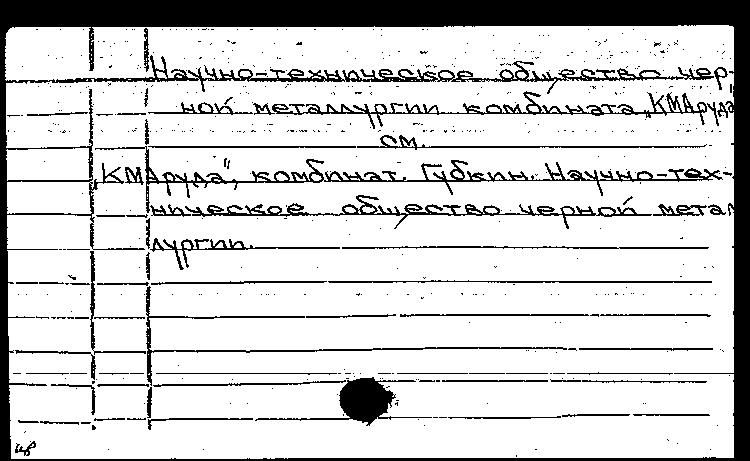 Научно-техническое общество чер-
ной металлургии комбината „КМАруда"
см.
„КМАруда", комбинат. Губкин. Научно-тех-
ническое общество черной метал
лургии.